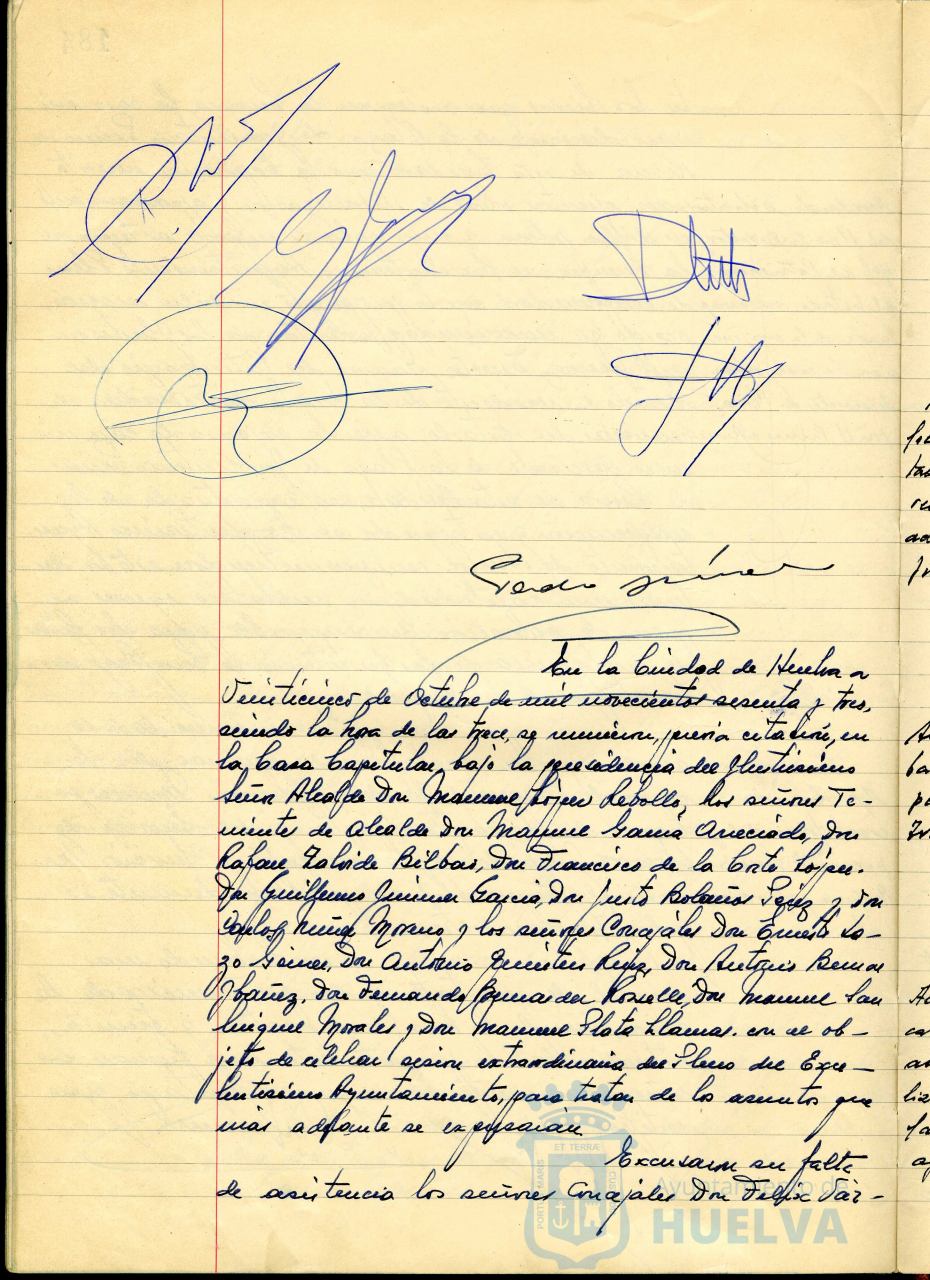 En la Ciudad de Huelva a
Veinticinco de Octubre de mil novecientos sesenta y tres,
siendo la hora de las trece, se reunieron, previa citación, en
la Casa Capitular, bajo la presidencia del Ilustrísimo
Señor Alcalde Don Manuel López Rebollo, los señores Te-
nientes de Alcalde Don Manuel García Don
Rafael Bilbao, Don Francisco de la Corte López.
Don Guillermo Jiménez García, Don Justo Bolaños Pérez y Don
Carlos Moreno y los señores Concejales Don Ernesto La-
zo Don Antonio Ruiz, Don Antonio
Ibáñez, Don Fernando Don Manuel San
Miguel Morales y Don Manuel Plata Llamas. con el ob-
jeto de celebrar sesión extraordinaria del Pleno del Exce-
lentísimo Ayuntamiento, para tratar de los asuntos que
más adelante se expresarán.
Excusaron su falta
de asistencia los señores Concejales Don
PORTUS MARIS ET TERRÆ CUSTODIA
Ayuntamiento de
HUELVA